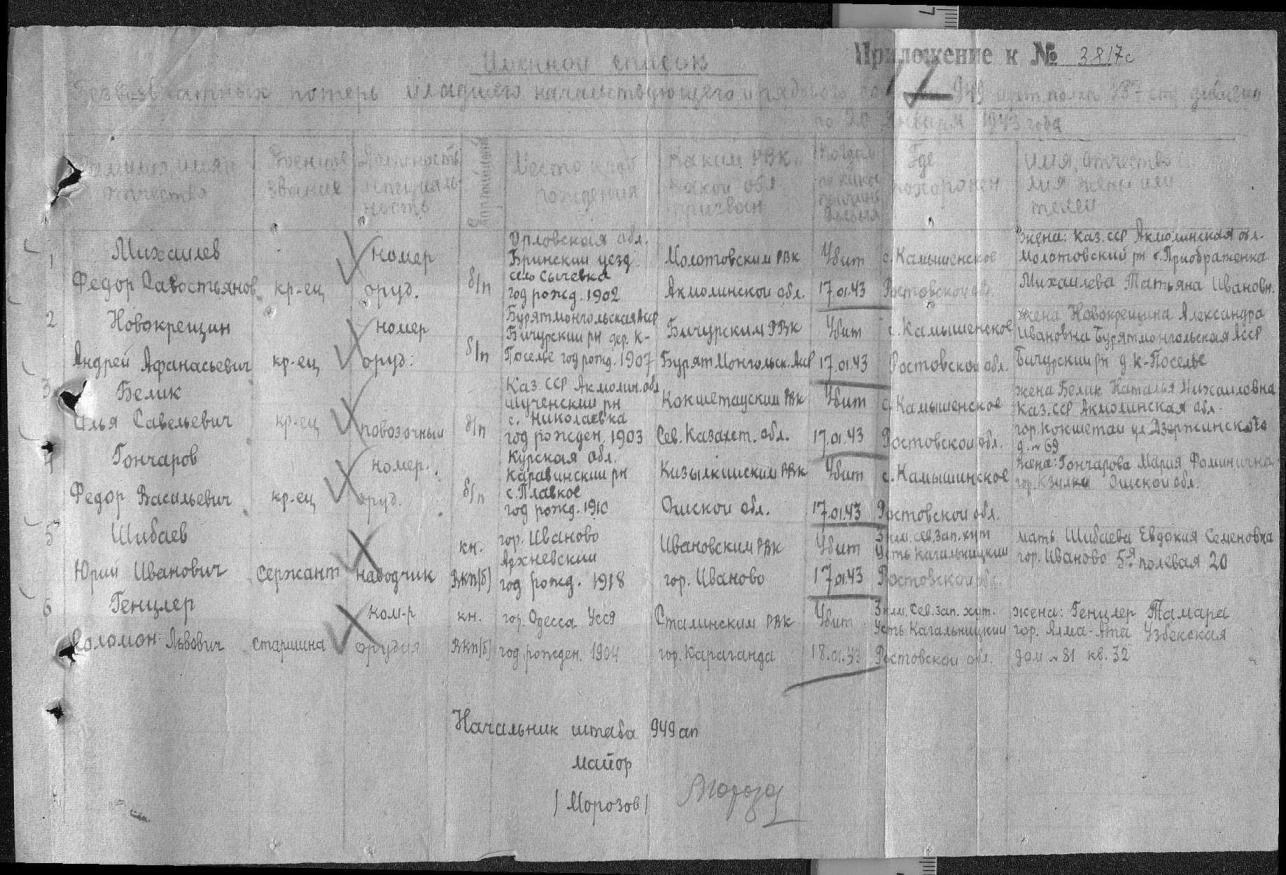 Приложение к № 3817с
Именной список
Безвозвратных потерь младшего начальствующего и рядового 949 арт полка стр. дивизии
по 20 января 1943 года
Фамилия имя отчество
Военное звание
Должность специальность
Партийность
Место и год рождения
Каким РВК какой обл. призван
Когда по какой причине
Где похоронен
Имя, отчество жены или
1
Михайлев
Федор Савостьянов.
кр-ец
номер
оруд.
б/п
Орловская обл.
Бринский уезд
село Сычевка
год рожд. 1902
Молотовским РВК
Акмолинской обл.
Убит
17.01.43
с. Камышенское
Ростовской обл.
жена: Каз. ССР Акмолинская обл.
Молотовский рн с. Приображенка
Михайлева Татьяна Ивановн.
2
Новокрещин
Андрей Афанасьевич
кр-ец
номер
оруд.
б/п
Бурятмонгольская Асср
Бичурский рн дер. К-
Поселье год рожд. 1907
Бичурским РВК
БурятМонгольск. Асср
Убит
17.01.43
с. Камышенское
Ростовской обл.
жена Новокрещина Александра
Ивановна Бурятмонгольская АССР
Бичурский рн д. К-Поселье
3
Белик
Илья Савельевич
кр-ец
повозочный
б/п
Каз. ССР Акмолин. обл
рн
с. Николаевка
год рожден. 1903
Кокшетауским РВК
Сев. Казахст. обл.
Убит
17.01.43
с. Камышенское
Ростовской обл.
жена Белик Наталья Михайловна
Каз. ССР Акмолинская обл.
гор. Кокшетау ул Дзержинского
д. № 69
4
Гончаров
Федор Васильевич
кр-ец
номер.
оруд.
б/п
Курская обл.
Каравинский рн
с. Плавкое
год рожд. 1910
Кизылкийским РВК
Ошской обл.
Убит
17.01.43
с. Камышинское
Ростовской обл.
жена: Гончарова Мария Фоминична
гор. Ошской обл.
5
Шибаев
Юрий Иванович
Сержант
наводчик
кн.
ВКП(б)
гор. Иваново
год рожд. 1918
Ивановским РВК
гор. Иваново
Убит
17.01.43
3 км. сев. зап. хут
Усть Кагальницкий
Ростовской
мать Шибаева Евдокия Семеновка
гор. Иваново 5-я полевая 20
6
Генцлер
Соломон Львович
старшина
ком-р
орудия
кн.
ВКП(б)
гор. Одесса УССР
год рожден. 1904
Сталинским РВК
гор. Караганда
Убит
18.01.43
3 км. сев. зап. хут.
Усть Кагальницкий
Ростовской обл.
жена: Генцлер Тамара
гор. Алма-Ата Узбекская
дом № 81 кв. 32
Начальник штаба 949 ап
майор
/ Морозов /